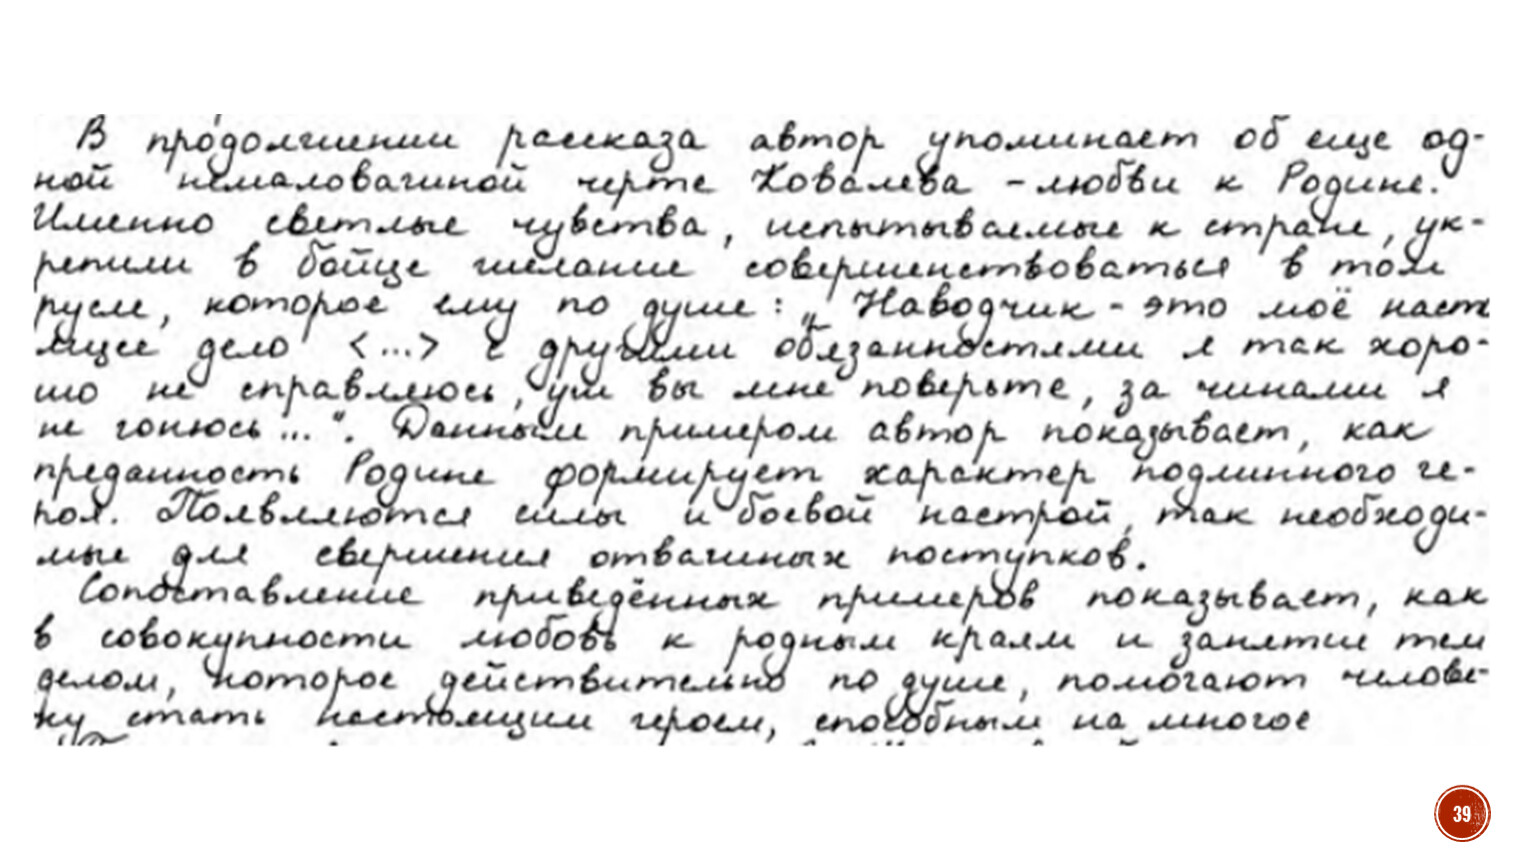 В продолжении рассказа автор упоминает об еще од-
ной немаловажной черте Ковалева - любви к Родине.
Именно светлые чувства, испытываемые к стране, ук-
репили в бойце желание совершенствоваться в том
русле, которое ему по душе: „Наводчик - это моё наст
ящее дело <...> с другими обязанностями я так хоро-
шо не справляюсь, уж вы мне поверьте, за чинами я
не гонюсь...“. Данным примером автор показывает, как
преданность Родине формирует характер подлинного ге-
роя. Появляются силы и боевой настрой, так необходи-
мые для свершения отважных поступков.
Сопоставление приведённых примеров показывает, как
в совокупности любовь к родным краям и занятие тем
делом, которое действительно по душе, помогают челове-
ку стать настоящим героем, способным на многое
39